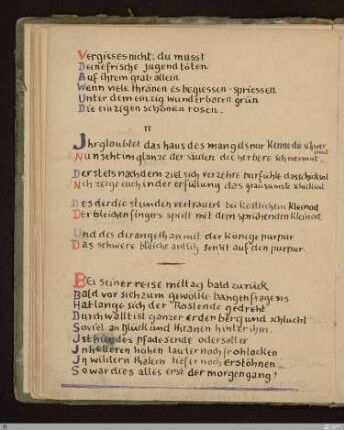 Vergisses nicht: du musst
Deine frische jugend töten
Auf ihrem grab allein
Wenn viele thränen es begiessen - spriessen
Unter dem einzig wunderbaren grün
Die einzigen schönen rosen.
IV
Ihr glaubtet das haus des mangels nur kenne die schwermut
Nun seht im glanze der säulen die herbere schwermut
Der stets nach dem ziel sich verzehre nur fühle das schicksal
Ich zeige euch in der erfüllung das grausamste schicksal
Des der die stunden vertrauert bei köstlichem kleinod
Der bleichen fingers spielt mit dem sprühenden kleinod
Und des der angethan mit der könige purpur
Das schwere bleiche antlitz senkt auf den purpur.
Bei seiner reise mittag bald zurück
Bald vor sich zum gewölke bangen fragens
Hat lange sich der Rastende gedreht
Durchwallt ist ganzer erden berg und schlucht
So viel an glück und thränen hinter ihm.
Ist hin des pfades ende oder soll er
In helleren höhen lauter noch frohlocken
In wildern thälern tiefer noch erstöhnen
So war dies alles erst der morgengang?